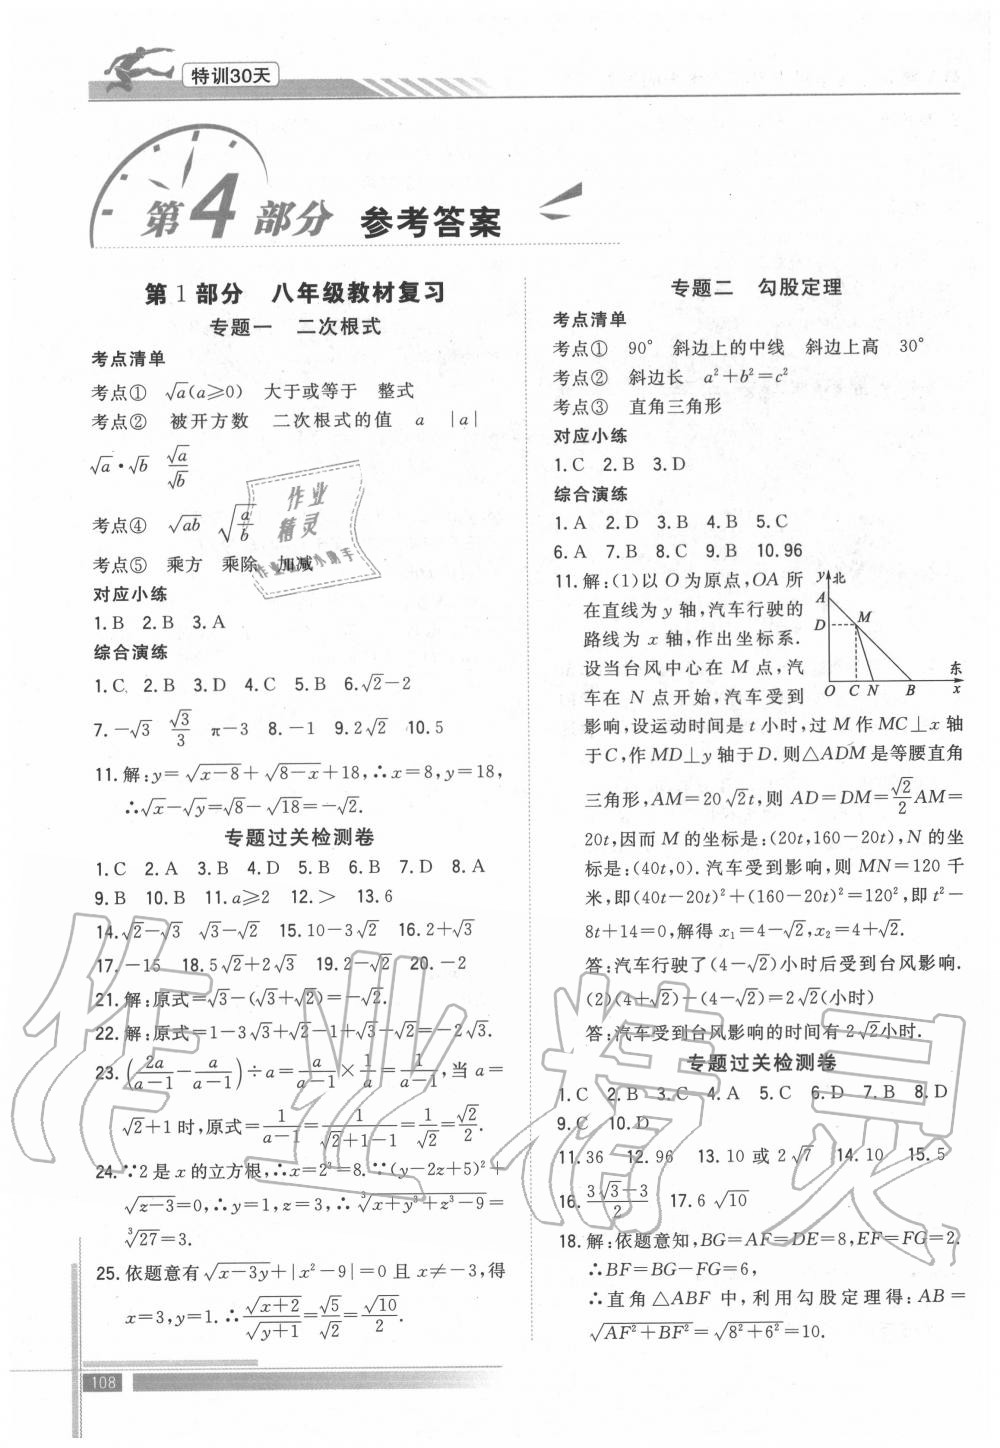 特训30天
第4部分 参考答案
第1部分 八年级教材复习
专题一 二次根式
考点清单
考点① √a(a≥0) 大于或等于 整式
考点② 被开方数 二次根式的值 a |a|
√a·√b √a/√b
考点④ √ab √(a/b)
考点⑤ 乘方 乘除 加减
对应小练
1.B 2.B 3.A
综合演练
1.C 2.B 3.D 4.C 5.B 6.√2-2
7.-√3 √3/3 π-3 8.-1 9.2√2 10.5
11.解:y=√(x-8)+√(8-x)+18,∴x=8,y=18,
∴√x-√y=√8-√18=-√2.
专题过关检测卷
1.C 2.A 3.B 4.D 5.B 6.B 7.D 8.A
9.B 10.B 11.a≥2 12.> 13.6
14.√2-√3 √3-√2 15.10-3√2 16.2+√3
17.-15 18.5√2+2√3 19.2-√2 20.-2
21.解:原式=√3-(√3+√2)=-√2.
22.解:原式=1-3√3+√2-1+√3-√2=-2√3.
23.(2a/(a-1)-a/(a-1))÷a=a/(a-1)×1/a=1/(a-1),当a=
√2+1时,原式=1/(a-1)=1/(√2+1-1)=1/√2=√2/2.
24.∵2是x的立方根,∴x=2³=8.∵(y-2z+5)²+
√(z-3)=0,∴y=1,z=3,∴³√(x+y³+z³-9)=
³√27=3.
25.依题意有√(x-3y)+|x²-9|=0且x≠-3,得
x=3,y=1.∴√(x+2)/√(y+1)=√5/√2=√10/2.
108
专题二 勾股定理
考点清单
考点① 90° 斜边上的中线 斜边上高 30°
考点② 斜边长 a²+b²=c²
考点③ 直角三角形
对应小练
1.C 2.B 3.D
综合演练
1.A 2.D 3.B 4.B 5.C
6.A 7.B 8.C 9.B 10.96
11.解:(1)以O为原点,OA所
在直线为y轴,汽车行驶的
路线为x轴,作出坐标系.
设当台风中心在M点,汽
车在N点开始,汽车受到
y 北
A
D M
O C N B 东 x
影响,设运动时间是t小时,过M作MC⊥x轴
于C,作MD⊥y轴于D.则△ADM是等腰直角
三角形,AM=20√2t,则AD=DM=√2/2AM=
20t,因而M的坐标是:(20t,160-20t),N的坐
标是:(40t,0).汽车受到影响,则MN=120千
米,即(40t-20t)²+(160-20t)²=120²,即t²-
8t+14=0,解得x₁=4-√2,x₂=4+√2.
答:汽车行驶了(4-√2)小时后受到台风影响.
(2)(4+√2)-(4-√2)=2√2(小时)
答:汽车受到台风影响的时间有2√2小时.
专题过关检测卷
1.C 2.B 3.C 4.A 5.C 6.D 7.B 8.D
9.C 10.D
11.36 12.96 13.10或2√7 14.10 15.5
16.(3√3-3)/2 17.6 √10
18.解:依题意知,BG=AF=DE=8,EF=FG=2.
∴BF=BG-FG=6,
∴直角△ABF中,利用勾股定理得:AB=
√(AF²+BF²)=√(8²+6²)=10.
作业精灵
作业精灵